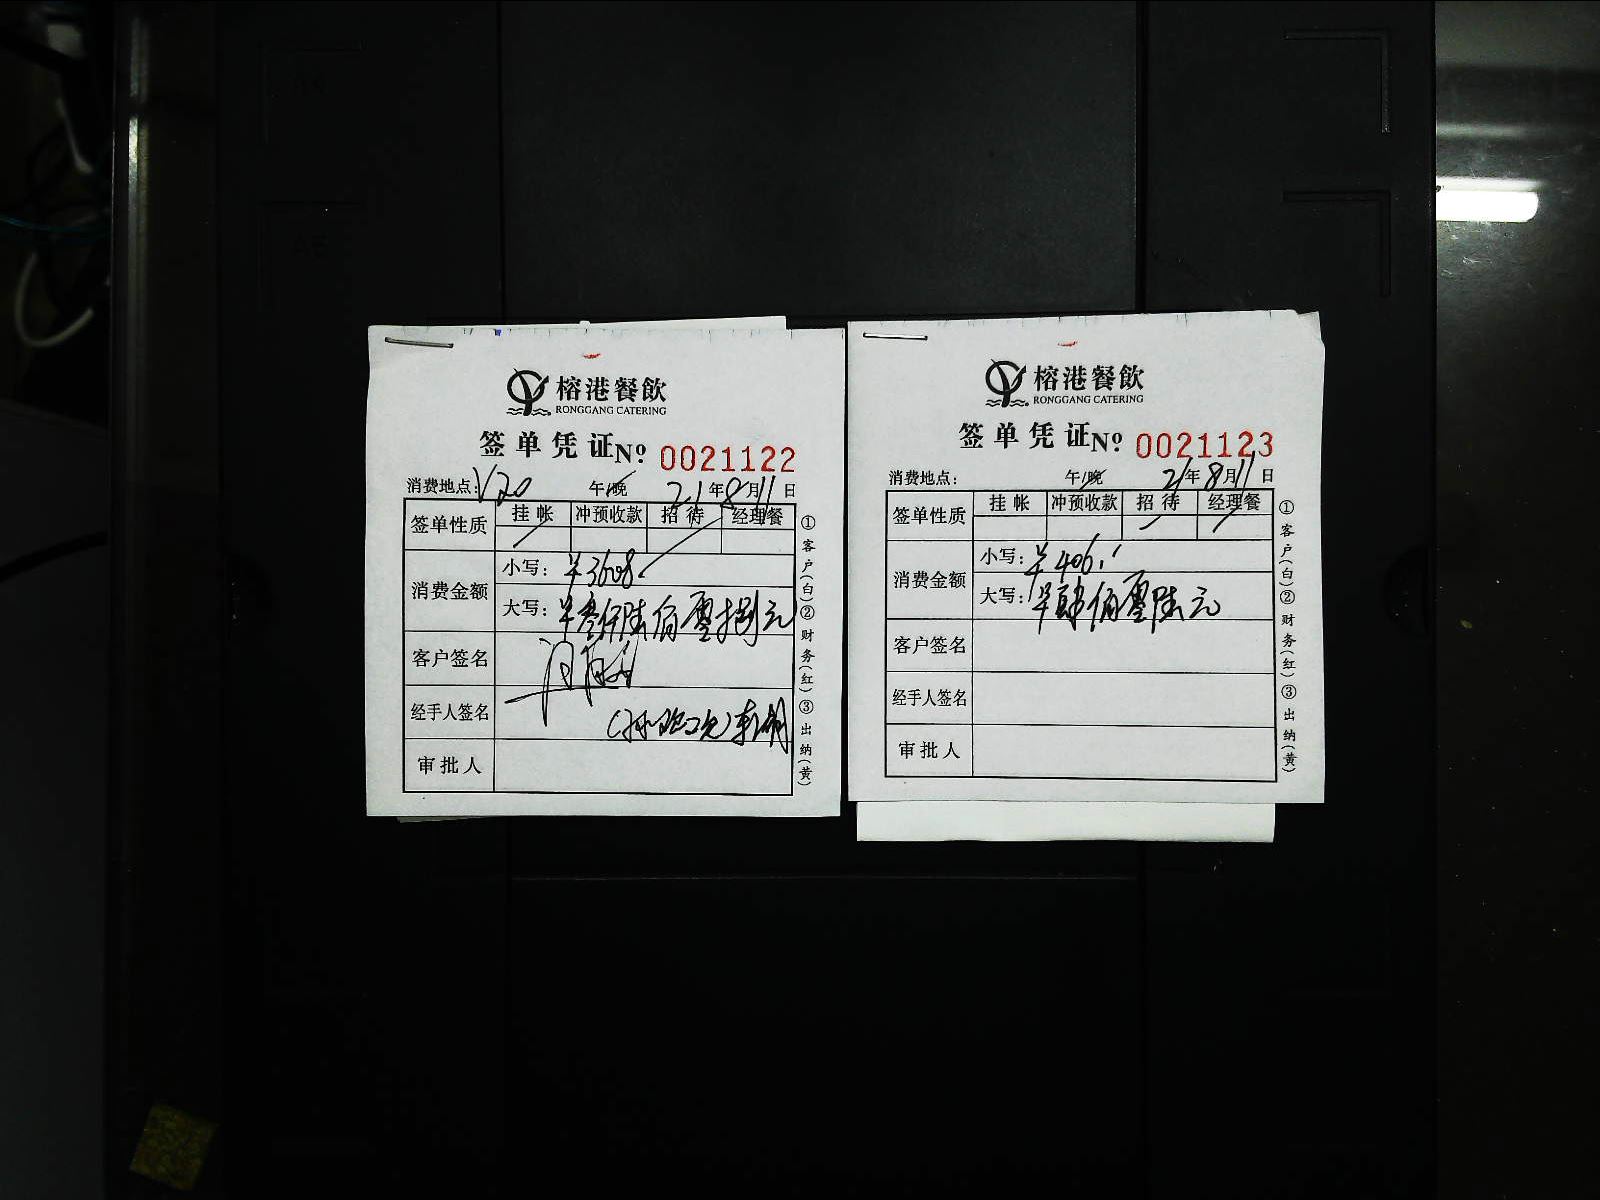 榕港餐飲
RONGGANG CATERING
签单凭证 Nº 0021122
消费地点: V20 午/晚 21年8月11日
签单性质 挂帐 冲预收款 招待 经理餐
消费金额
小写: ¥3608
大写: 叁仟陆佰零捌元
客户签名
经手人签名
审批人
①客户(白)②财务(红)③出纳(黄)
榕港餐飲
RONGGANG CATERING
签单凭证 Nº 0021123
消费地点: 午/晚 21年8月11日
签单性质 挂帐 冲预收款 招待 经理餐
消费金额
小写: ¥406.
大写: 肆佰零陆元
客户签名
经手人签名
审批人
①客户(白)②财务(红)③出纳(黄)